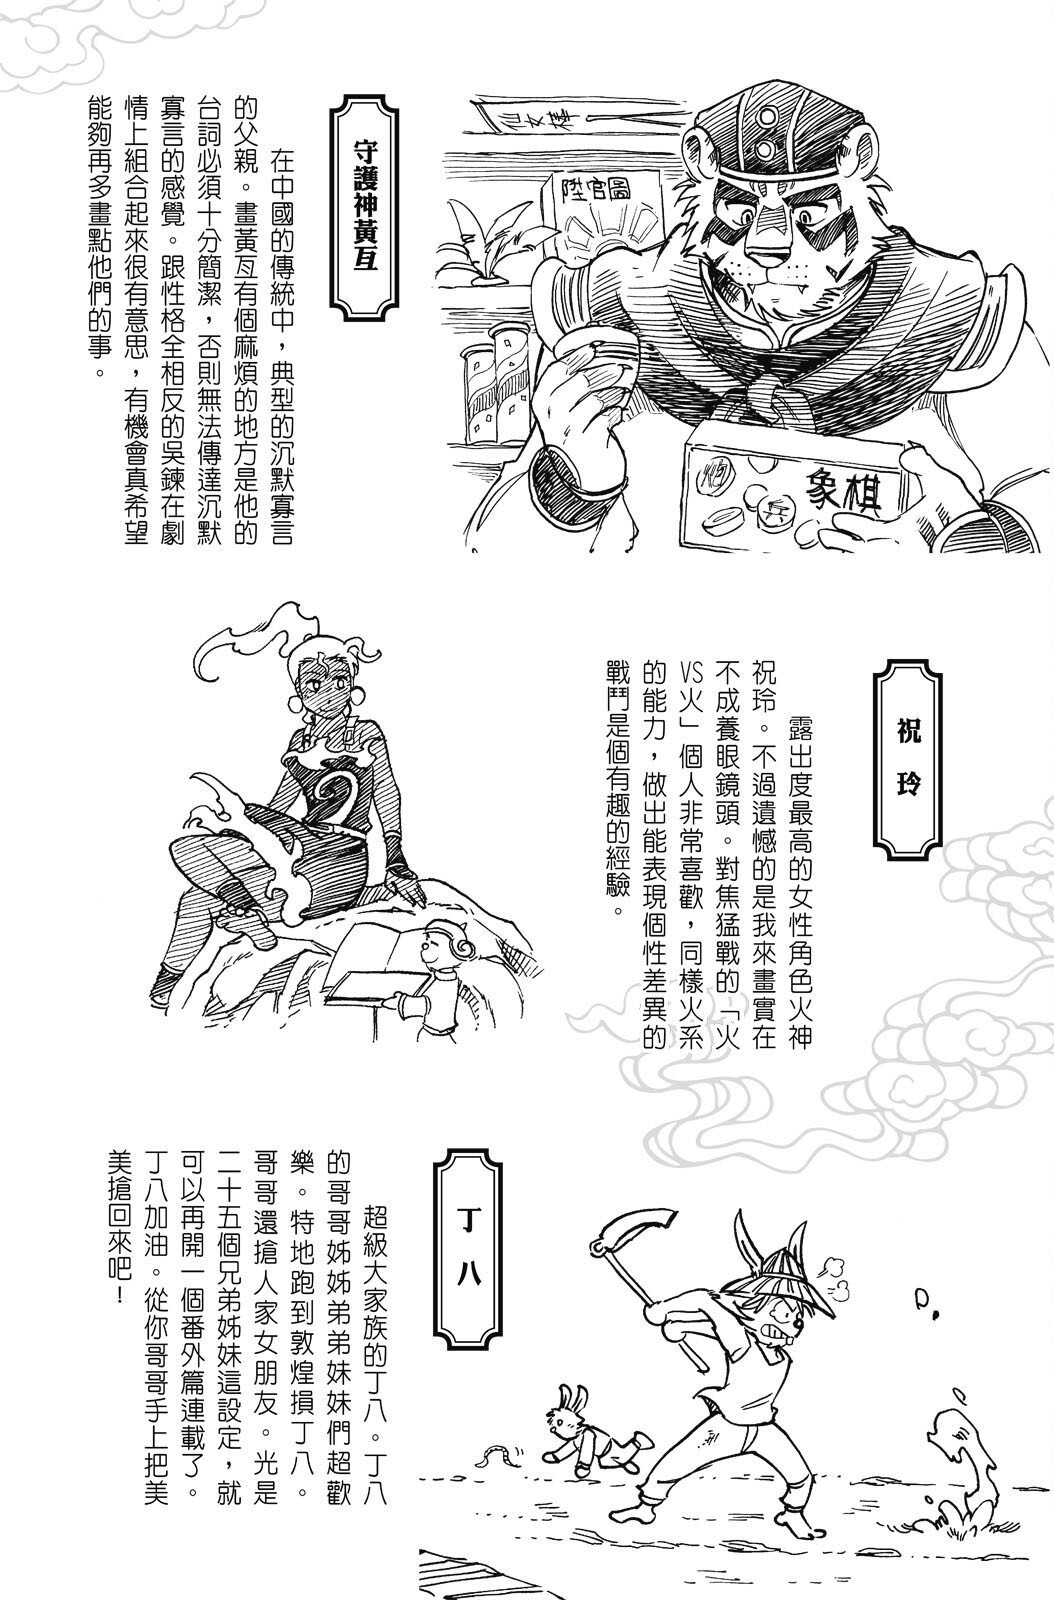 仙女棒
陞官圖
象棋
炮
兵
守護神黃亙
在中國的傳統中，典型的沉默寡言
的父親。畫黃亙有個麻煩的地方是他的
台詞必須十分簡潔，否則無法傳達沉默
寡言的感覺。跟性格全相反的吳鍊在劇
情上組合起來很有意思，有機會真希望
能夠再多畫點他們的事。
祝玲
露出度最高的女性角色火神
祝玲。不過遺憾的是我來畫實在
不成養眼鏡頭。對焦猛戰的「火
VS火」個人非常喜歡，同樣火系
的能力，做出能表現個性差異的
戰鬥是個有趣的經驗。
丁八
超級大家族的丁八。丁八
的哥哥姊姊弟弟妹妹們超歡
樂。特地跑到敦煌損丁八。
哥哥還搶人家女朋友。光是
二十五個兄弟姊妹這設定，就
可以再開一個番外篇連載了。
丁八加油。從你哥哥手上把美
美搶回來吧！